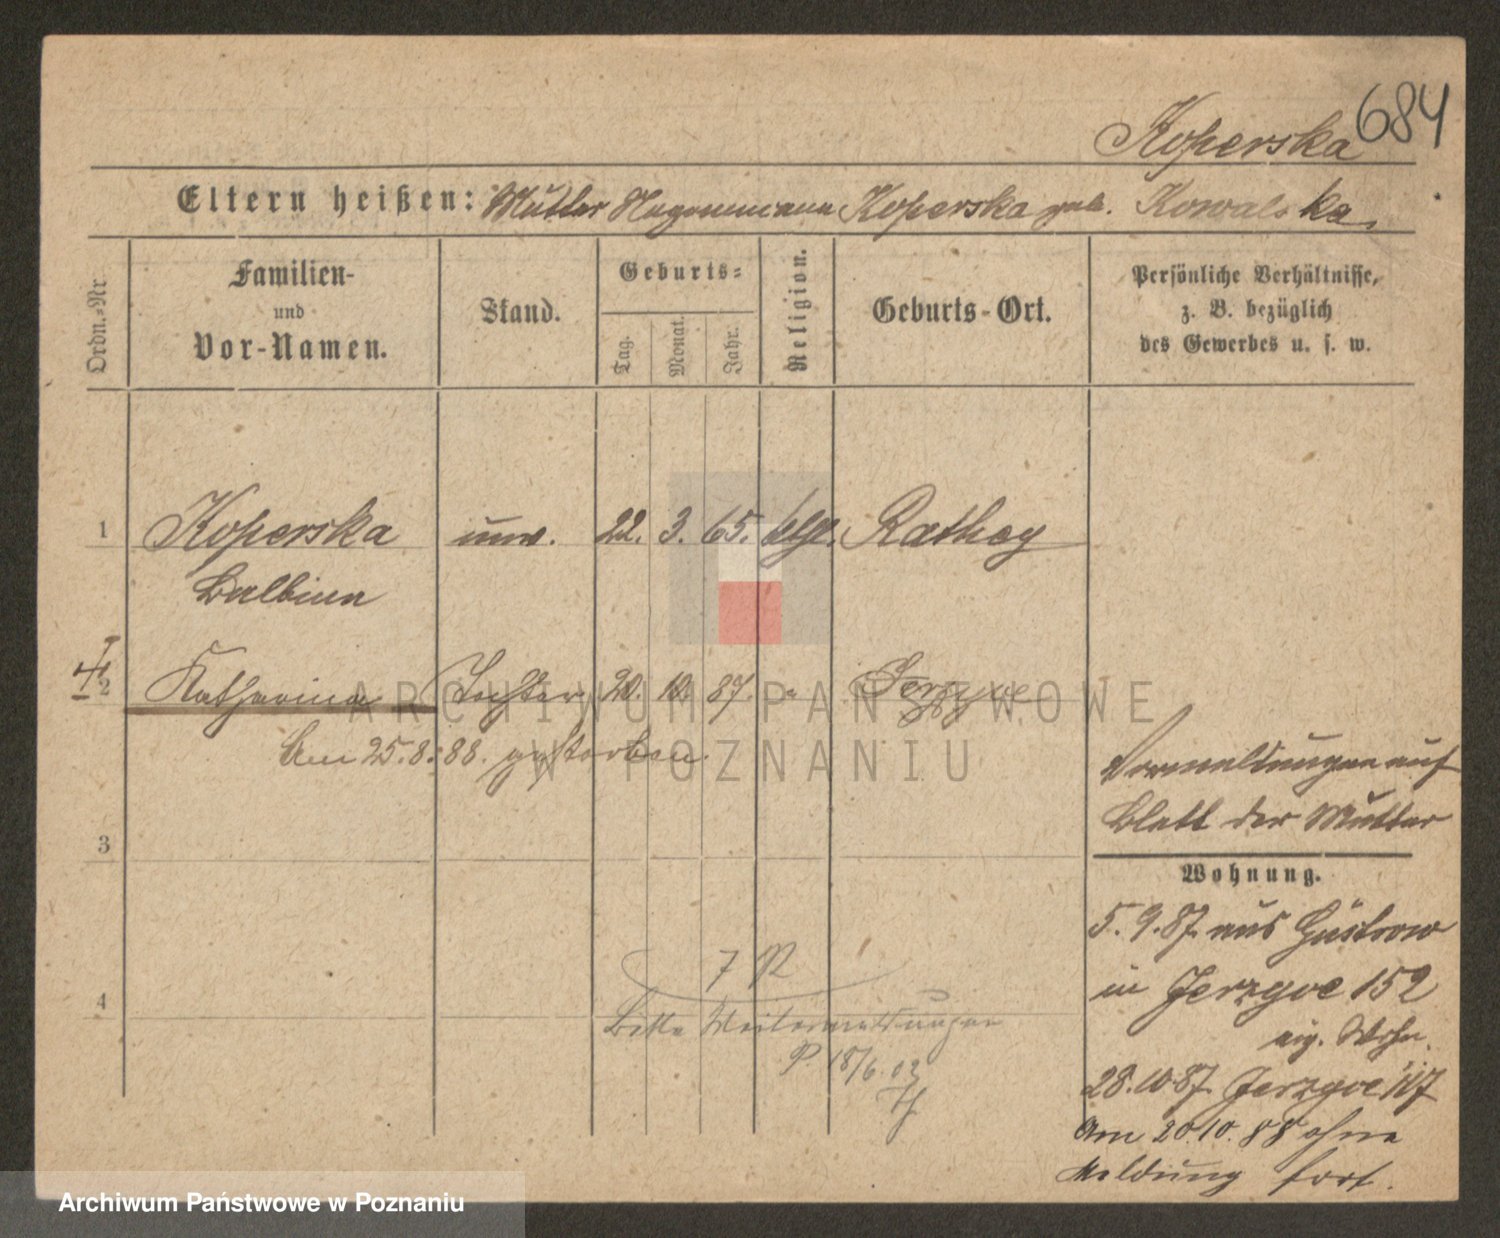 684
Koperska
Eltern heißen: Mutter Koperska geb. Kowalska.
Ordn.-Nr.
Familien-
und
Vor-Namen.
Stand.
Geburts-
Tag.
Monat.
Jahr.
Religion.
Geburts-Ort.
Persönliche Verhältnisse,
z. B. bezüglich
des Gewerbes u. s. w.
1 Koperska unv. 22. 3. 65. ktgl. Rathay
Balbina
2 Katharina Tochter 20. 10. 87. " Jerzyce
Am 25.8.88. gestorben.
ARCHIWUM PAŃSTWOWE
W POZNANIU
Vormeldungen auf
Blatt der Mutter
3
Wohnung.
5.9.87. aus Güstrow
in Jerzyce 152
eig. Wohn.
28.10.87. Jerzyce 117
Am 20.10.88 ohne
Meldung fort.
4
7 R
Bitte Weitermeldungen
P. 18/6.02
Archiwum Państwowe w Poznaniu